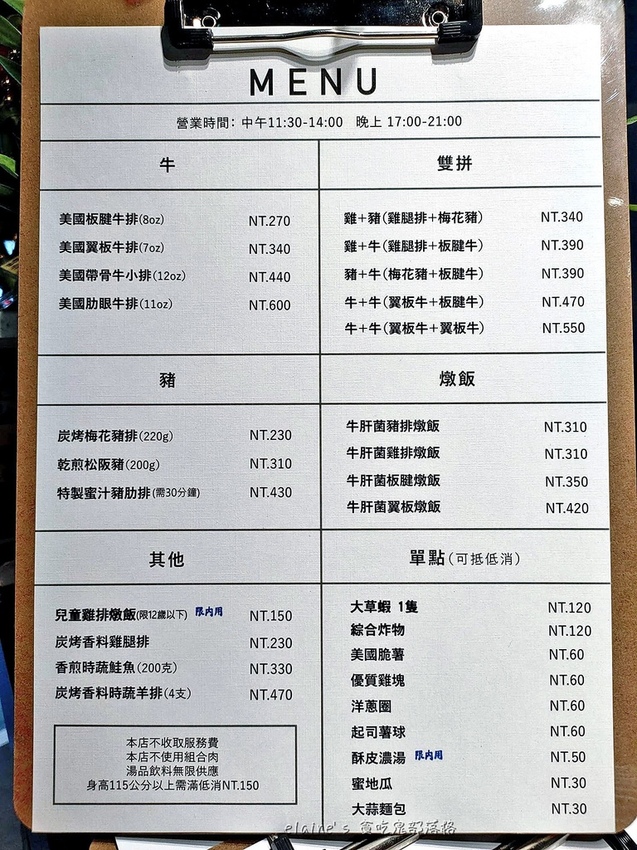 MENU
營業時間：中午11:30-14:00 晚上 17:00-21:00
牛
美國板腱牛排(8oz) NT.270
美國翼板牛排(7oz) NT.340
美國帶骨牛小排(12oz) NT.440
美國肋眼牛排(11oz) NT.600
雙拼
雞+豬(雞腿排+梅花豬) NT.340
雞+牛(雞腿排+板腱牛) NT.390
豬+牛(梅花豬+板腱牛) NT.390
牛+牛(翼板牛+板腱牛) NT.470
牛+牛(翼板牛+翼板牛) NT.550
豬
炭烤梅花豬排(220g) NT.230
乾煎松阪豬(200g) NT.310
特製蜜汁豬肋排(需30分鐘) NT.430
燉飯
牛肝菌豬排燉飯 NT.310
牛肝菌雞排燉飯 NT.310
牛肝菌板腱燉飯 NT.350
牛肝菌翼板燉飯 NT.420
其他
兒童雞排燉飯(限12歲以下) 限內用 NT.150
炭烤香料雞腿排 NT.230
香煎時蔬鮭魚(200克) NT.330
炭烤香料時蔬羊排(4支) NT.470
本店不收取服務費
本店不使用組合肉
湯品飲料無限供應
身高115公分以上需滿低消NT.150
單點(可抵低消)
大草蝦 1隻 NT.120
綜合炸物 NT.120
美國脆薯 NT.60
優質雞塊 NT.60
洋蔥圈 NT.60
起司薯球 NT.60
酥皮濃湯 限內用 NT.50
蜜地瓜 NT.30
大蒜麵包 NT.30
elaine's 貪吃鬼部落格